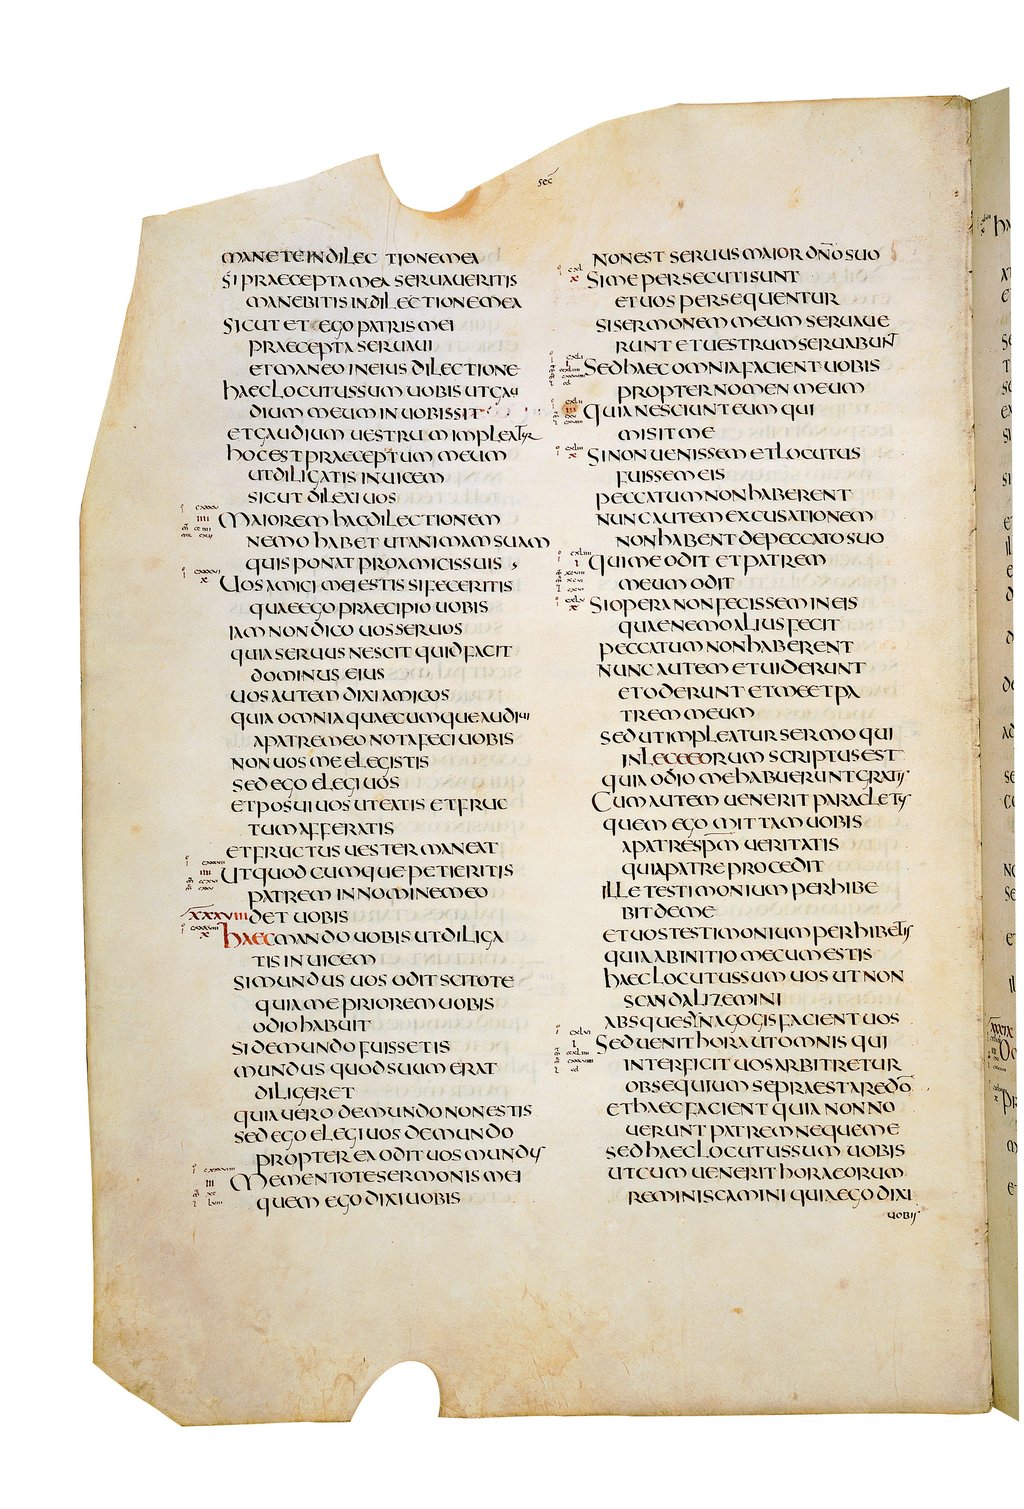 sec
MANETE IN DILECTIONE MEA
SI PRAECEPTA MEA SERUAUERITIS
MANEBITIS IN DILECTIONE MEA
SICUT ET EGO PATRIS MEI
PRAECEPTA SERUAUI
ET MANEO IN EIUS DILECTIONE
HAEC LOCUTUS SUM UOBIS UT GAU
DIUM MEUM IN UOBIS SIT
ET GAUDIUM UESTRUM IMPLEATUR
HOC EST PRAECEPTUM MEUM
UT DILIGATIS INUICEM
SICUT DILEXI UOS
MAIOREM HAC DILECTIONEM
NEMO HABET UT ANIMAM SUAM
QUIS PONAT PRO AMICIS SUIS
UOS AMICI MEI ESTIS SI FECERITIS
QUAE EGO PRAECIPIO UOBIS
IAM NON DICO UOS SERUOS
QUIA SERUUS NESCIT QUID FACIT
DOMINUS EIUS
UOS AUTEM DIXI AMICOS
QUIA OMNIA QUAECUMQUE AUDIUI
A PATRE MEO NOTA FECI UOBIS
NON UOS ME ELEGISTIS
SED EGO ELEGI UOS
ET POSUI UOS UT EATIS ET FRUC
TUM AFFERATIS
ET FRUCTUS UESTER MANEAT
UT QUODCUMQUE PETIERITIS
PATREM IN NOMINE MEO
XXXVIII DET UOBIS
HAEC MANDO UOBIS UT DILIGA
TIS INUICEM
SI MUNDUS UOS ODIT SCITOTE
QUIA ME PRIOREM UOBIS
ODIO HABUIT
SI DE MUNDO FUISSETIS
MUNDUS QUOD SUUM ERAT
DILIGERET
QUIA UERO DE MUNDO NON ESTIS
SED EGO ELEGI UOS DE MUNDO
PROPTEREA ODIT UOS MUNDUS
MEMENTOTE SERMONIS MEI
QUEM EGO DIXI UOBIS
NON EST SERUUS MAIOR DN̄O SUO
SI ME PERSECUTI SUNT
ET UOS PERSEQUENTUR
SI SERMONEM MEUM SERUAUE
RUNT ET UESTRUM SERUABUNT
SED HAEC OMNIA FACIENT UOBIS
PROPTER NOMEN MEUM
QUIA NESCIUNT EUM QUI
MISIT ME
SI NON UENISSEM ET LOCUTUS
FUISSEM EIS
PECCATUM NON HABERENT
NUNC AUTEM EXCUSATIONEM
NON HABENT DE PECCATO SUO
QUI ME ODIT ET PATREM
MEUM ODIT
SI OPERA NON FECISSEM IN EIS
QUAE NEMO ALIUS FECIT
PECCATUM NON HABERENT
NUNC AUTEM ET UIDERUNT
ET ODERUNT ET ME ET PA
TREM MEUM
SED UT IMPLEATUR SERMO QUI
IN LEGE EORUM SCRIPTUS EST
QUIA ODIO ME HABUERUNT GRATIS
CUM AUTEM UENERIT PARACLETUS
QUEM EGO MITTAM UOBIS
A PATRE SP̄M UERITATIS
QUI A PATRE PROCEDIT
ILLE TESTIMONIUM PERHIBE
BIT DE ME
ET UOS TESTIMONIUM PERHIBETIS
QUIA AB INITIO MECUM ESTIS
HAEC LOCUTUS SUM UOS UT NON
SCANDALIZEMINI
ABSQUE SYNAGOGIS FACIENT UOS
SED UENIT HORA UT OMNIS QUI
INTERFICIT UOS ARBITRETUR
OBSEQUIUM SE PRAESTARE DŌ
ET HAEC FACIENT QUIA NON NO
UERUNT PATREM NEQUE ME
SED HAEC LOCUTUS SUM UOBIS
UT CUM UENERIT HORA EORUM
REMINISCAMINI QUIA EGO DIXI
UOBIS